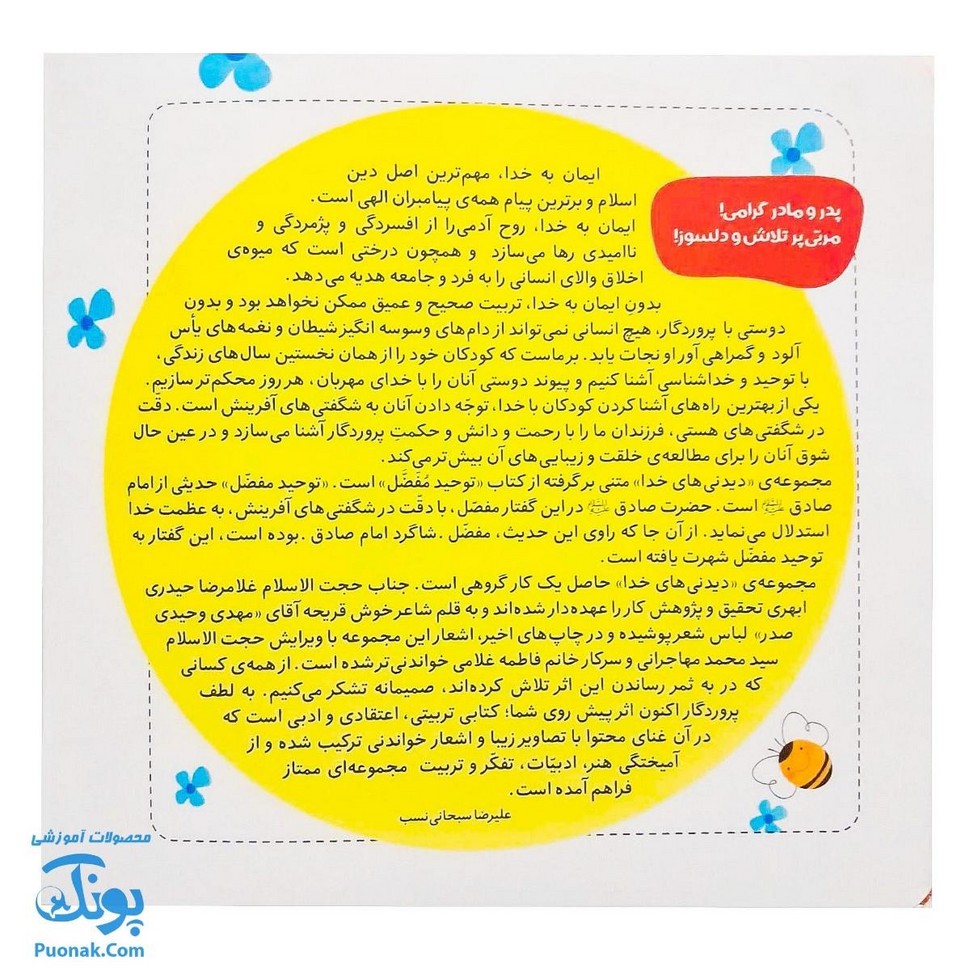 پدر و مادر گرامی!
مربّی پر تلاش و دلسوز!
ایمان به خدا، مهم‌ترین اصل دین
اسلام و برترین پیام همه‌ی پیامبران الهی است.
ایمان به خدا، روح آدمی را از افسردگی و پژمردگی و
ناامیدی رها می‌سازد و همچون درختی است که میوه‌ی
اخلاق والای انسانی را به فرد و جامعه هدیه می‌دهد.
بدونِ ایمان به خدا، تربیت صحیح و عمیق ممکن نخواهد بود و بدون
دوستی با پروردگار، هیچ انسانی نمی‌تواند از دام‌های وسوسه انگیز شیطان و نغمه‌های یأس
آلود و گمراهی آور او نجات یابد. بر ماست که کودکان خود را از همان نخستین سال‌های زندگی،
با توحید و خداشناسی آشنا کنیم و پیوند دوستی آنان را با خدای مهربان، هر روز محکم‌تر سازیم.
یکی از بهترین راه‌های آشنا کردن کودکان با خدا، توجّه دادن آنان به شگفتی‌های آفرینش است. دقّت
در شگفتی‌های هستی، فرزندان ما را با رحمت و دانش و حکمتِ پروردگار آشنا می‌سازد و در عین حال
شوق آنان را برای مطالعه‌ی خلقت و زیبایی‌های آن بیش‌تر می‌کند.
مجموعه‌ی «دیدنی‌های خدا» متنی برگرفته از کتاب «توحید مُفَضَّل» است. «توحید مفضّل» حدیثی از امام
صادق است. حضرت صادق در این گفتار مفضّل، با دقّت در شگفتی‌های آفرینش، به عظمت خدا
استدلال می‌نماید. از آن جا که راوی این حدیث، مفضّل .شاگرد امام صادق .بوده است، این گفتار به
توحید مفضّل شهرت یافته است.
مجموعه‌ی «دیدنی‌های خدا» حاصل یک کار گروهی است. جناب حجت الاسلام غلامرضا حیدری
ابهری تحقیق و پژوهش کار را عهده‌دار شده‌اند و به قلم شاعر خوش قریحه آقای «مهدی وحیدی
صدر» لباس شعر پوشیده و در چاپ‌های اخیر، اشعار این مجموعه با ویرایش حجت الاسلام
سید محمد مهاجرانی و سرکار خانم فاطمه غلامی خواندنی‌تر شده است. از همه‌ی کسانی
که در به ثمر رساندن این اثر تلاش کرده‌اند، صمیمانه تشکر می‌کنیم. به لطف
پروردگار اکنون اثر پیش روی شما؛ کتابی تربیتی، اعتقادی و ادبی است که
در آن غنای محتوا با تصاویر زیبا و اشعار خواندنی ترکیب شده و از
آمیختگی هنر، ادبیّات، تفکّر و تربیت مجموعه‌ای ممتاز
فراهم آمده است.
علیرضا سبحانی نسب
محصولات آموزشی
پونک
Puonak.Com